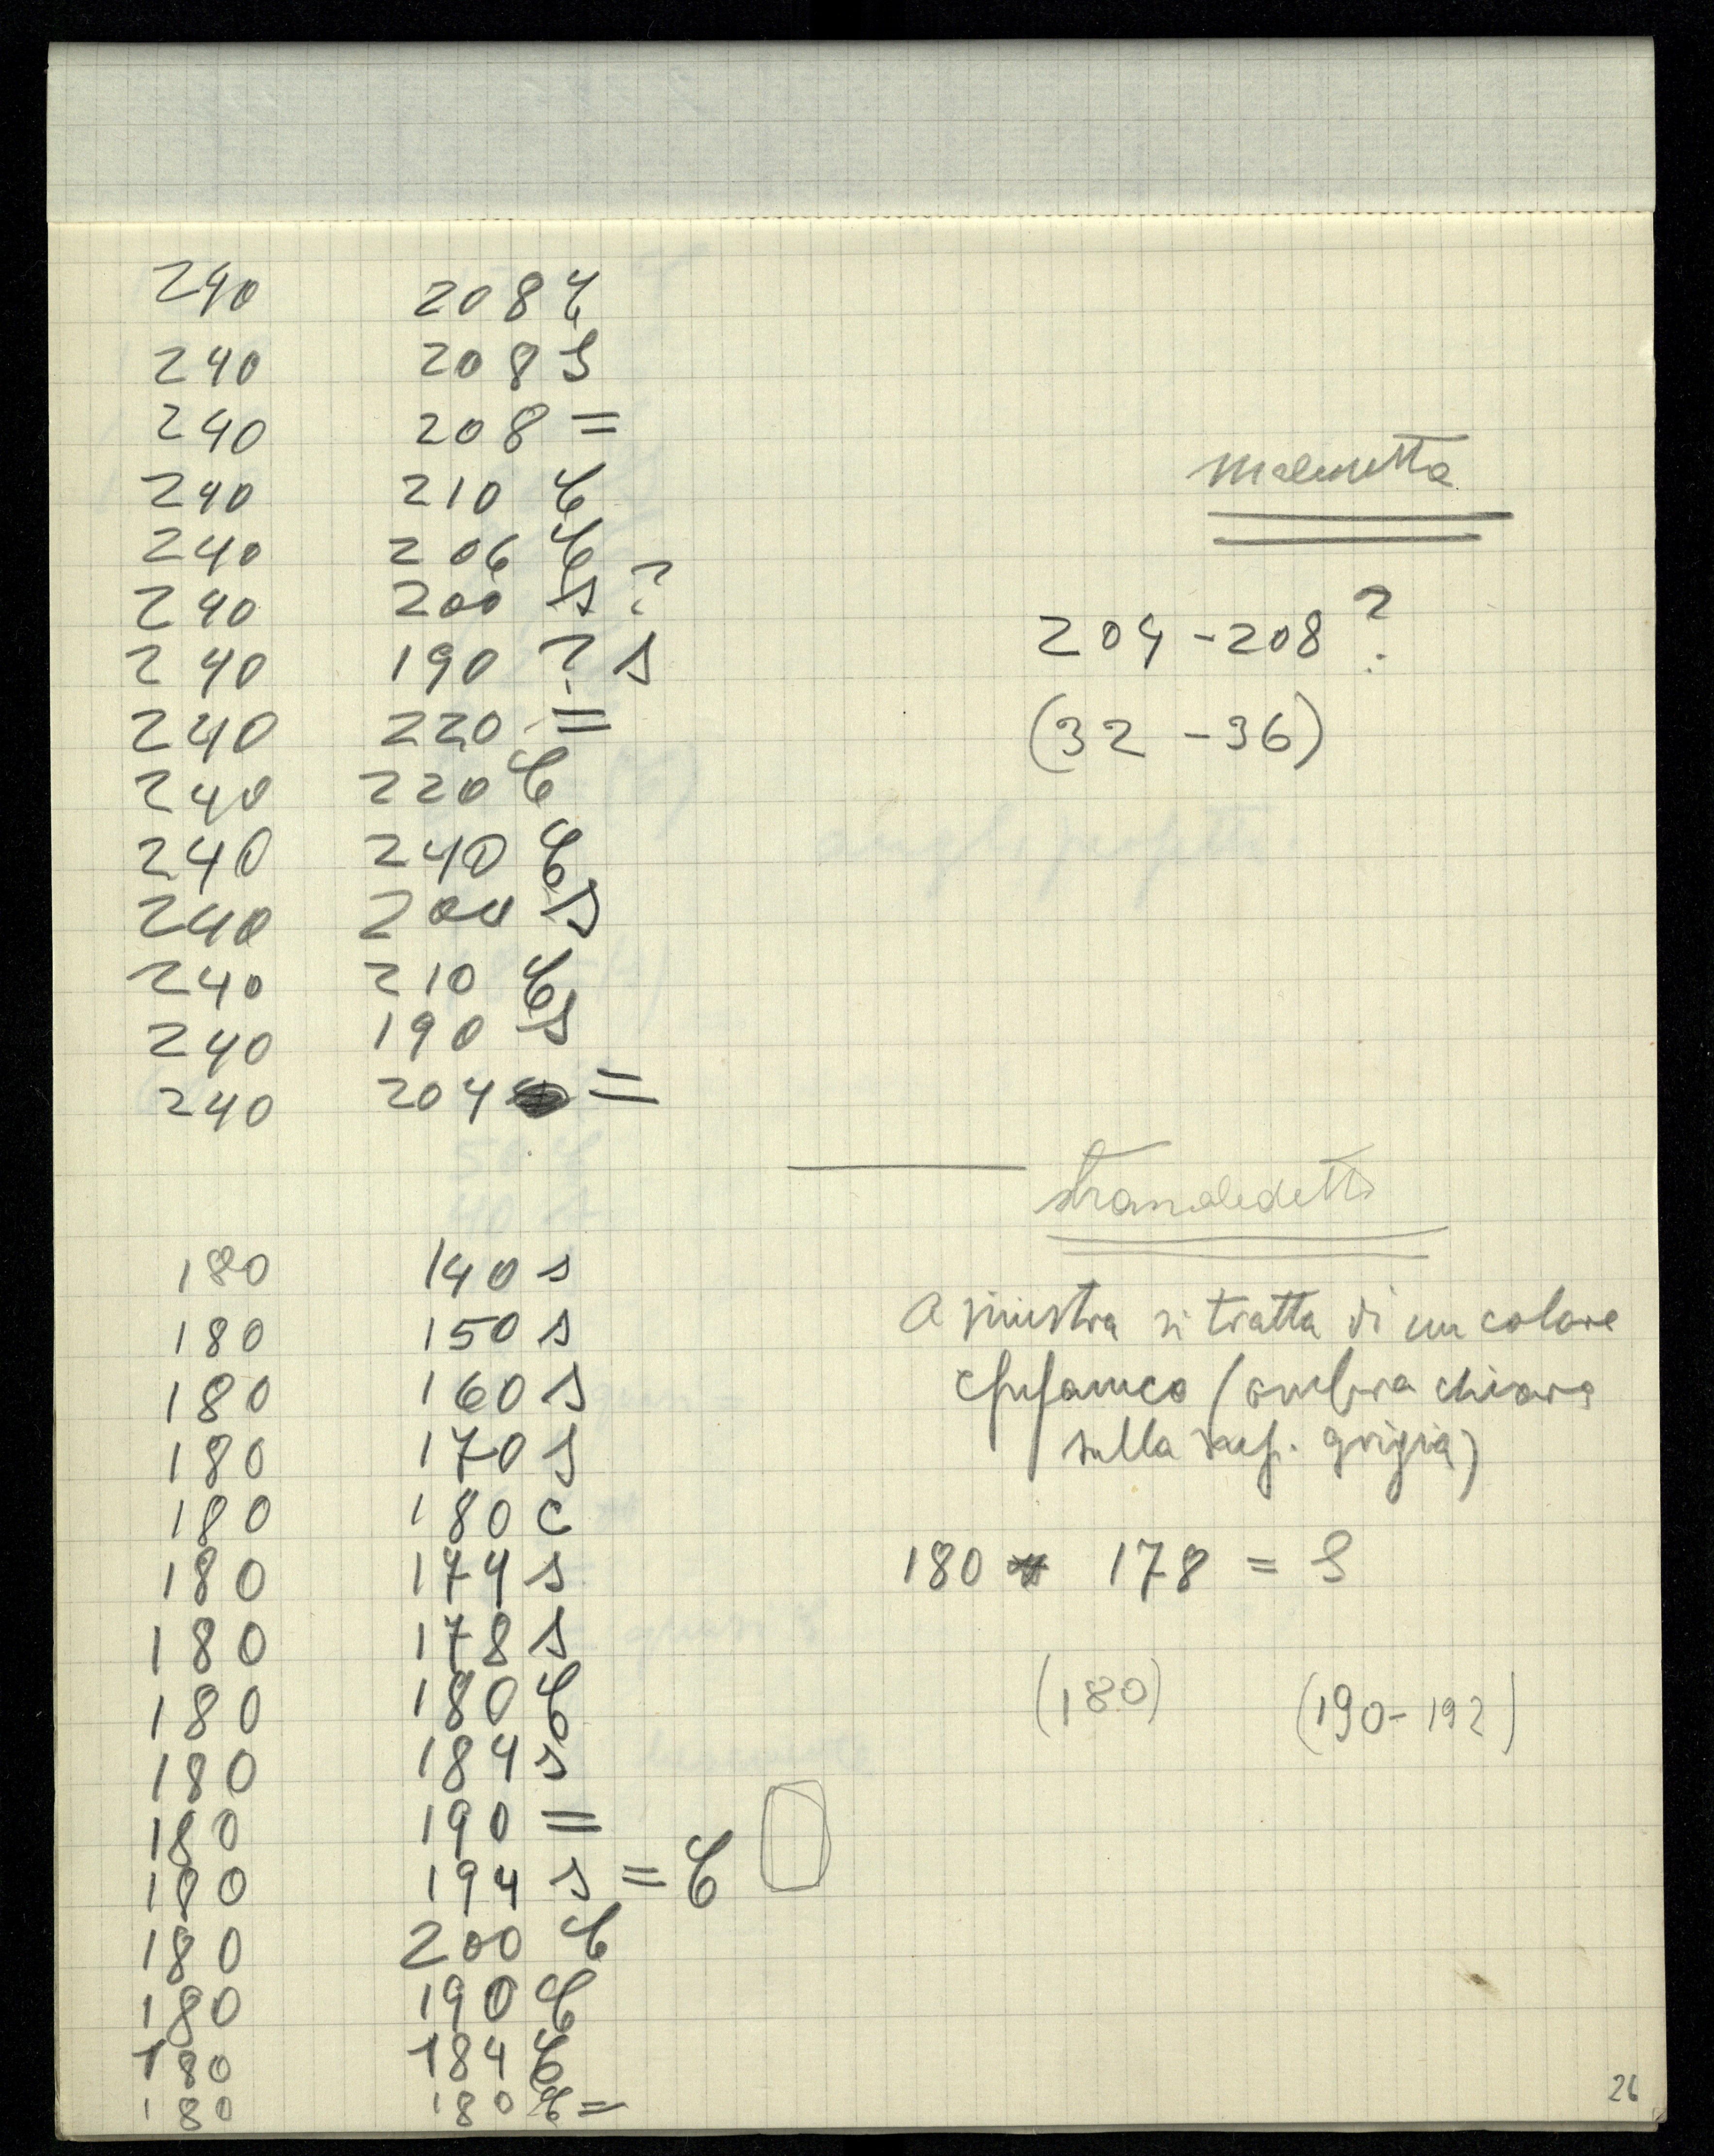 240 208 C
240 208 S
240 208 =
240 210 C
240 206 C
240 200 S ?
240 190 ? S
240 220 =
240 220 C
240 240 C
240 200 S
240 210 C
240 190 S
240 204 =
maledetta
204 - 208 ?
(32 - 36)
stramaledetta
180 140 s
180 150 s
180 160 s
180 170 s
180 180 c
180 174 s
180 178 s
180 180 C
180 184 s
180 190 =
180 194 s = C
180 200 C
180 190 C
180 184 C
180 180 C =
A sinistra si tratta di un colore
epifanico (ombra chiara
sulla sup. grigia)
180 178 = S
(180) (190 - 192)
26